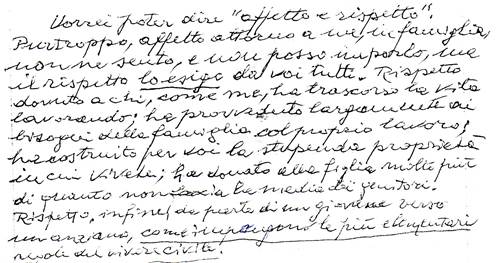 Vorrei poter dire "affetto e rispetto".
Purtroppo, affetto attorno a me, in famiglia,
non ne sento, e non posso imporlo, ma
il rispetto lo esigo da voi tutti. Rispetto
dovuto a chi, come me, ha trascorso la vita
lavorando; ha provveduto largamente ai
bisogni della famiglia col proprio lavoro;
ha costruito per voi la stupenda proprietà
in cui vivete; ha donato alla figlia molto più
di quanto non faccia la media dei genitori.
Rispetto, infine, da parte di un giovane verso
un anziano, come impongono le più elementari
regole del vivere civile.